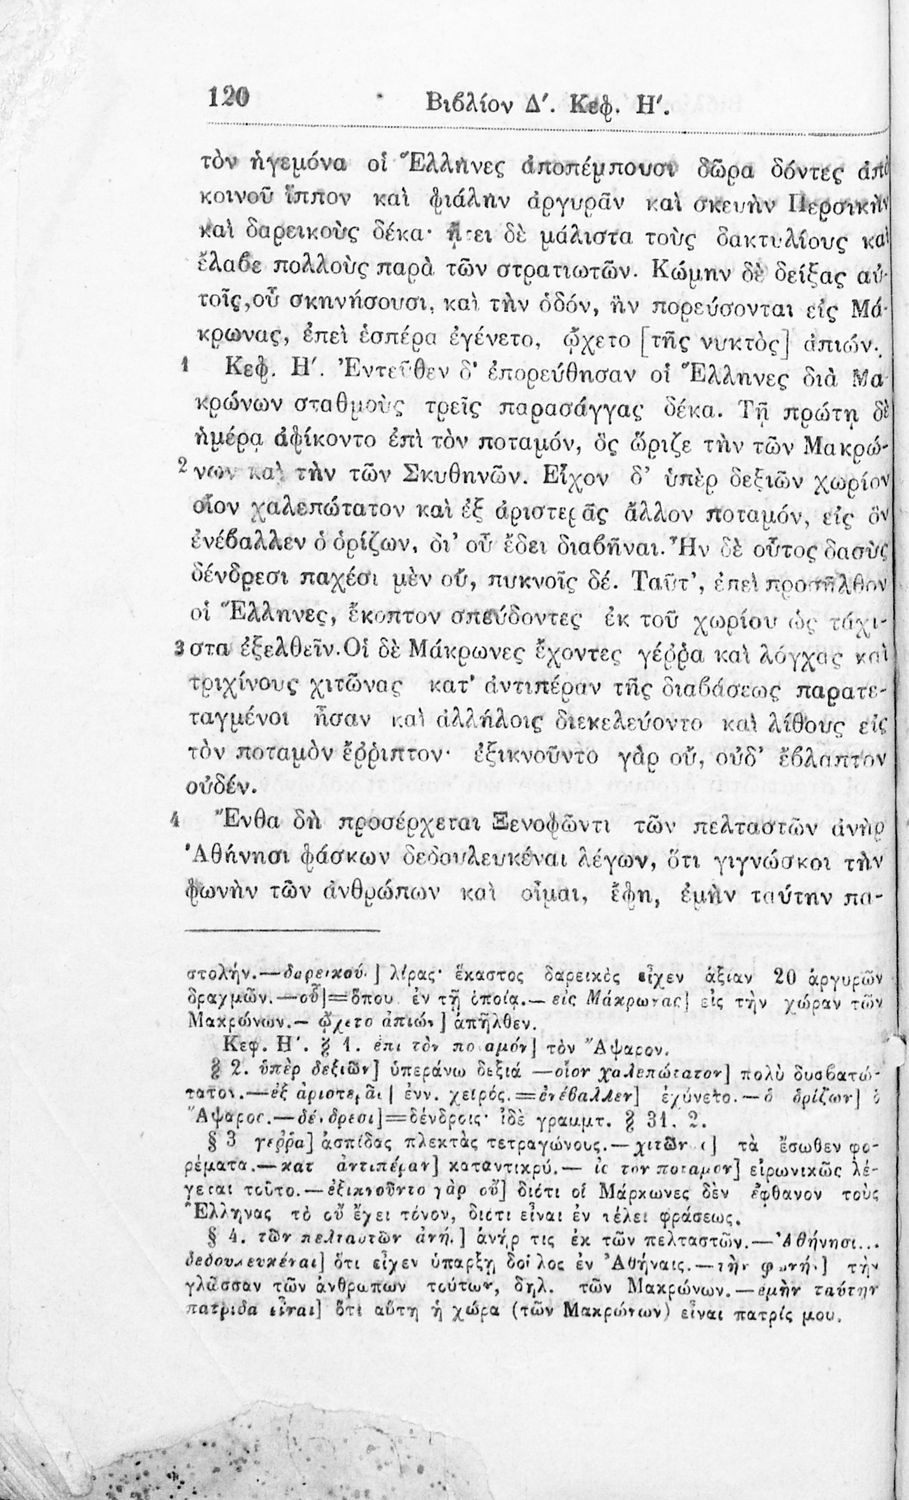 120 Βιβλίον Δ′. Κεφ. Η′.
τὸν ἡγεμόνα οἱ Ἕλληνες ἀποπέμπουσι δῶρα δόντες ἀπὸ
κοινοῦ ἵππον καὶ φιάλην ἀργυρᾶν καὶ σκευὴν Περσικὴν
καὶ δαρεικοὺς δέκα· ᾔτει δὲ μάλιστα τοὺς δακτυλίους καὶ
ἔλαβε πολλοὺς παρὰ τῶν στρατιωτῶν. Κώμην δὲ δείξας αὐ-
τοῖς, οὗ σκηνήσουσι, καὶ τὴν ὁδόν, ἣν πορεύσονται εἰς Μά-
κρωνας, ἐπεὶ ἑσπέρα ἐγένετο, ᾤχετο [τῆς νυκτὸς] ἀπιών.
1 Κεφ. Η′. Ἐντεῦθεν δ' ἐπορεύθησαν οἱ Ἕλληνες διὰ Μα-
κρώνων σταθμοὺς τρεῖς παρασάγγας δέκα. Τῇ πρώτῃ δὲ
ἡμέρᾳ ἀφίκοντο ἐπὶ τὸν ποταμόν, ὃς ὥριζε τὴν τῶν Μακρώ-
2 νων καὶ τὴν τῶν Σκυθηνῶν. Εἶχον δ' ὑπὲρ δεξιῶν χωρίον
οἷον χαλεπώτατον καὶ ἐξ ἀριστερᾶς ἄλλον ποταμόν, εἰς ὃν
ἐνέβαλλεν ὁ ὁρίζων, δι' οὗ ἔδει διαβῆναι. Ἦν δὲ οὗτος δασὺς
δένδρεσι παχέσι μὲν οὔ, πυκνοῖς δέ. Ταῦτ', ἐπεὶ προσῆλθον
οἱ Ἕλληνες, ἔκοπτον σπεύδοντες ἐκ τοῦ χωρίου ὡς τάχι-
3 στα ἐξελθεῖν. Οἱ δὲ Μάκρωνες ἔχοντες γέῤῥα καὶ λόγχας καὶ
τριχίνους χιτῶνας κατ' ἀντιπέραν τῆς διαβάσεως παρατε-
ταγμένοι ἦσαν καὶ ἀλλήλοις διεκελεύοντο καὶ λίθους εἰς
τὸν ποταμὸν ἔῤῥιπτον· ἐξικνοῦντο γὰρ οὔ, οὐδ' ἔβλαπτον
οὐδέν.
4 Ἔνθα δὴ προσέρχεται Ξενοφῶντι τῶν πελταστῶν ἀνὴρ
Ἀθήνησι φάσκων δεδουλευκέναι λέγων, ὅτι γιγνώσκοι τὴν
φωνὴν τῶν ἀνθρώπων καὶ οἶμαι, ἔφη, ἐμὴν ταύτην πα-
στολήν.—δαρεικού.] λίρας· ἕκαστος δαρεικὸς εἶχεν ἀξίαν 20 ἀργυρῶν
δραχμῶν.—οὗ]=ὅπου ἐν τῇ ὁποίᾳ.—εἰς Μάκρωνας] εἰς τὴν χώραν τῶν
Μακρώνων.—ᾤχετο ἀπιών] ἀπῆλθεν.
Κεφ. Η′. § 1. ἐπι τὸν ποταμόν] τὸν Ἄψαρον.
§ 2. ὑπὲρ δεξιῶν] ὑπεράνω δεξιά —οἷον χαλεπώτατον] πολὺ δυσβατώ-
τατον.—ἐξ ἀριστερᾶς] ἐνν. χειρός.=ἐνέβαλλεν] ἐχύνετο.—ὁ ὁρίζων] ὁ
Ἄψαρος.—δένδρεσι]=δένδροις· ἰδὲ γραμμτ. § 31. 2.
§ 3 γέῤῥα] ἀσπίδας πλεκτὰς τετραγώνους.—χιτῶν] τὰ ἔσωθεν φο-
ρέματα.—κατ ἀντιπέραν] καταντικρύ.— τὸν ποταμόν] εἰρωνικῶς λέ-
γεται τοῦτο.—ἐξικνοῦντο γὰρ οὔ] διότι οἱ Μάρκωνες δὲν ἔφθανον τοὺς
Ἕλληνας τὸ οὔ ἔχει τόνον, διότι εἶναι ἐν τέλει φράσεως.
§ 4. τῶν πελταστῶν ἀνή.] ἀνήρ τις ἐκ τῶν πελταστῶν.—Ἀθήνησι...
δεδουλευκέναι] ὅτι εἶχεν ὑπάρξῃ δοῦλος ἐν Ἀθήναις.—τὴν φωνή.] τὴν
γλῶσσαν τῶν ἀνθρωπων τούτων, δηλ. τῶν Μακρώνων.—ἐμὴν ταύτην
πατρίδα εἶναι] ὅτι αὕτη ἡ χώρα (τῶν Μακρώνων) εἶναι πατρίς μου.